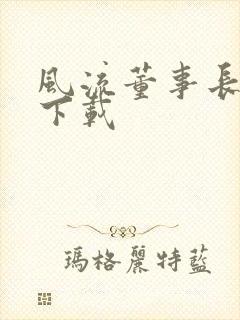 風流董事長
下載
瑪格麗特藍